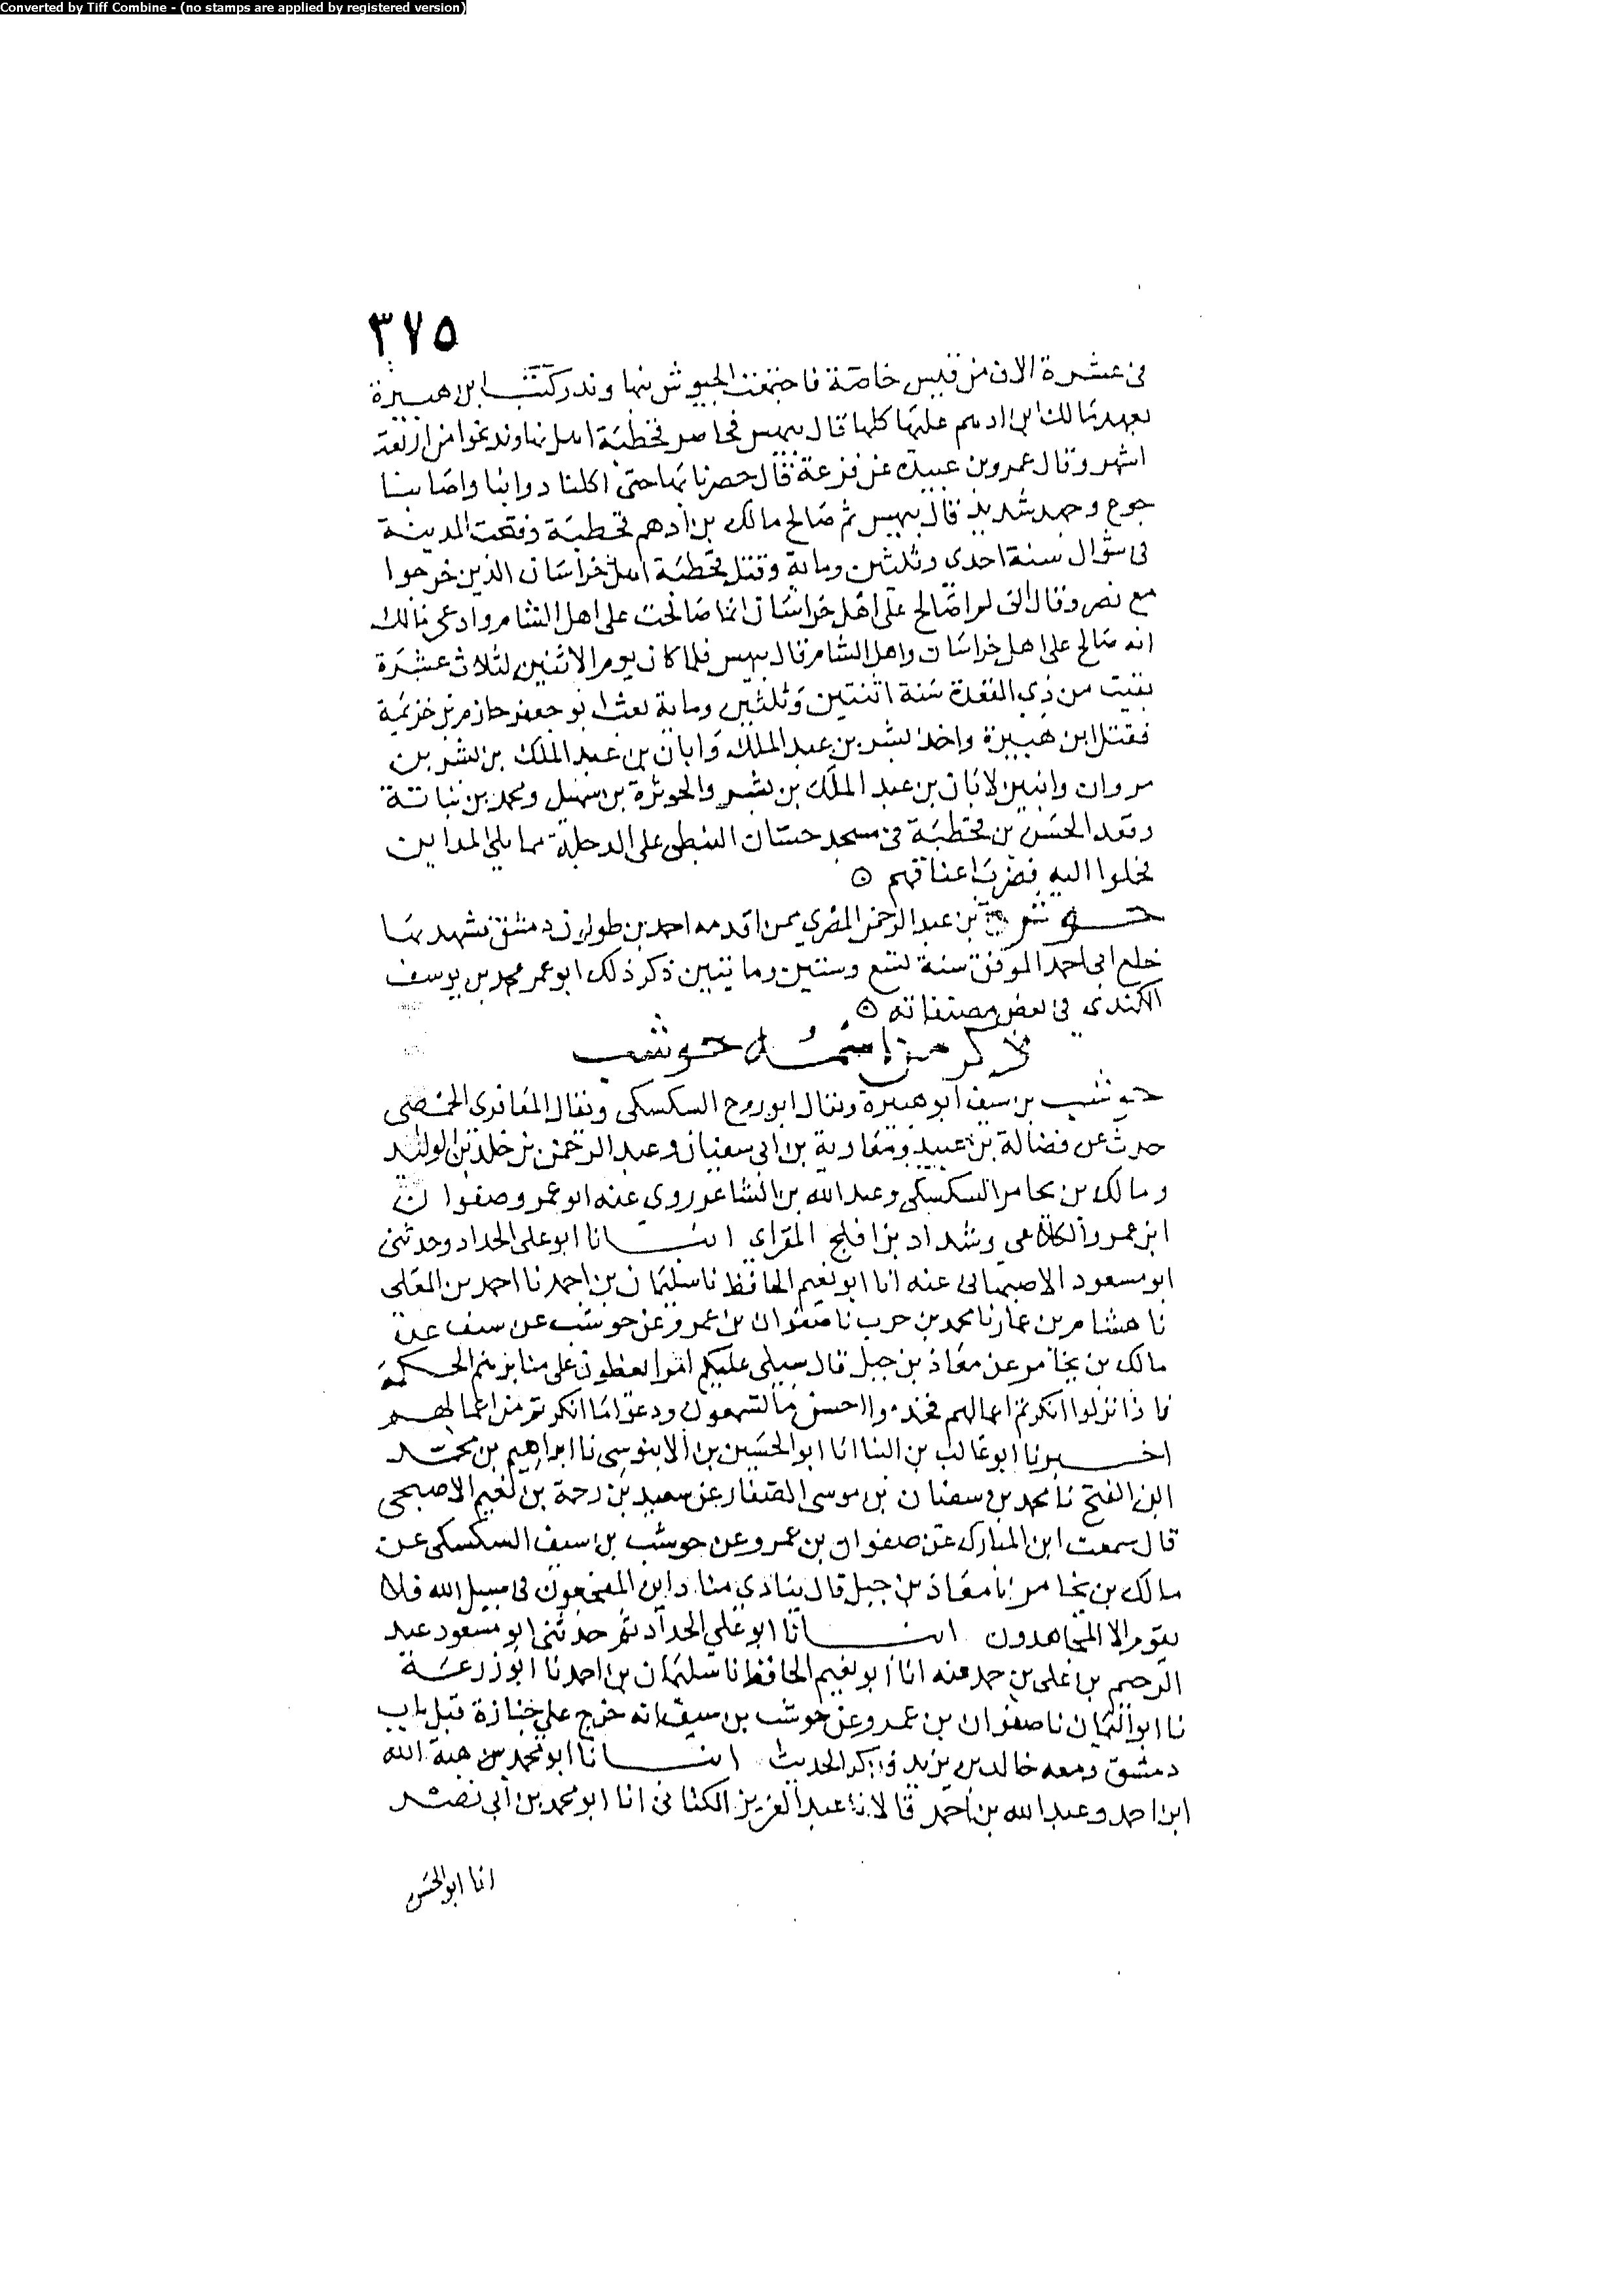 Converted by Tiff Combine - (no stamps are applied by registered version)
٣٧٥
في عشرة الاف من قيس خاصة فاجتمعت الجيوش بنهاوند وكتب ابن هبيرة
بعهد مالك ابن ادهم عليها كلها قال بيهس فحاصر قحطبة اهل نهاوند نحوا من اربعة
اشهر وقال عمرو بن عبيدة عن قزعة قال حصرنا بها حتى اكلنا دوابنا واصابنا
جوع وجهد شديد قال بيهس ثم صالح مالك بن ادهم قحطبة وفتحت المدينة
في شوال سنة احدى وثلثين وماية وقتل قحطبة اهل خراسان الذين خرجوا
مع نصر وقال اني لم اصالح على اهل خراسان انما صالحت على اهل الشام وادعى مالك
انه صالح على اهل خراسان واهل الشام قال بيهس فلما كان يوم الاثنين لثلاث عشرة
بقيت من ذي القعدة سنة اثنتين وثلثين وماية بعث ابو جعفر خازم بن خزيمة
فقتل ابن هبيرة واخذ بشر بن عبد الملك وابان بن عبد الملك بن بشر بن
مروان وابنين لابان بن عبد الملك بن بشر والحوثرة بن سهيل ومحمد بن نباتة
وقعد الحسن بن قحطبة في مسجد حسان النبطي على الدجلة مما يلي المداين
فحملوا اليه فضرب اعناقهم ٥
حوشرح بن عبد الرحمن المصري ممن اقدمه احمد بن طولون دمشق فشهد بها
خلع ابي احمد الموفق سنة تسع وستين ومايتين ذكر ذلك ابو عمر محمد بن يوسف
الكندي في بعض مصنفاته ٥
ذكر من اسمه حوشب
حوشب بن سيف ابو هبيرة ويقال ابو روح السكسكي ويقال المعافري الحمصي
حدث عن فضالة بن عبيد ومعاوية بن ابي سفيان وعبد الرحمن بن خلد بن الوليد
ومالك بن يخامر السكسكي وعبد الله بن الشاعر روى عنه ابو عمرو صفوان
ابن عمرو الكلاعي وشداد بن افلح المقراي انبانا ابو علي الحداد وحدثني
ابو مسعود الاصبهاني عنه انا ابو نعيم الحافظ نا سليمان بن احمد نا احمد بن المعلى
نا هشام بن عمار نا محمد بن حرب نا صفوان بن عمرو عن حوشب عن سيف عن
مالك بن يخامر عن معاذ بن جبل قال سيلي عليكم امرا يعظون على منابرهم الحكمة
فاذا نزلوا انكرتم اعمالهم فخذوا احسن ما تسمعون ودعوا ما انكرتم من اعمالهم
اخبرنا ابو غالب بن البنا انا ابو الحسين بن الابنوسي نا ابراهيم بن محمد
ابن الفتح نا محمد بن سفيان بن موسى الصفار عن سعيد بن رحمة بن نعيم الاصبحي
قال سمعت ابن المبارك عن صفوان بن عمرو عن حوشب بن سيف السكسكي عن
مالك بن يخامر نا معاذ بن جبل قال ينادي مناد اين المفجعون في سبيل الله فلا
يقوم الا المجاهدون انبانا ابو علي الحداد ثم حدثني ابو مسعود عبد
الرحيم بن علي بن حمد عنه انا ابو نعيم الحافظ نا سليمان بن احمد نا ابو زرعة
نا ابو اليمان نا صفوان بن عمرو عن حوشب بن سيف انه خرج على جنازة قبل باب
دمشق ومعه خالد بن يزيد فذكر الحديث انبانا ابو محمد بن هبة الله
ابن احمد وعبد الله بن احمد قالا نا عبد العزيز الكتاني انا ابو محمد بن ابي نصر
انا ابو الحسن